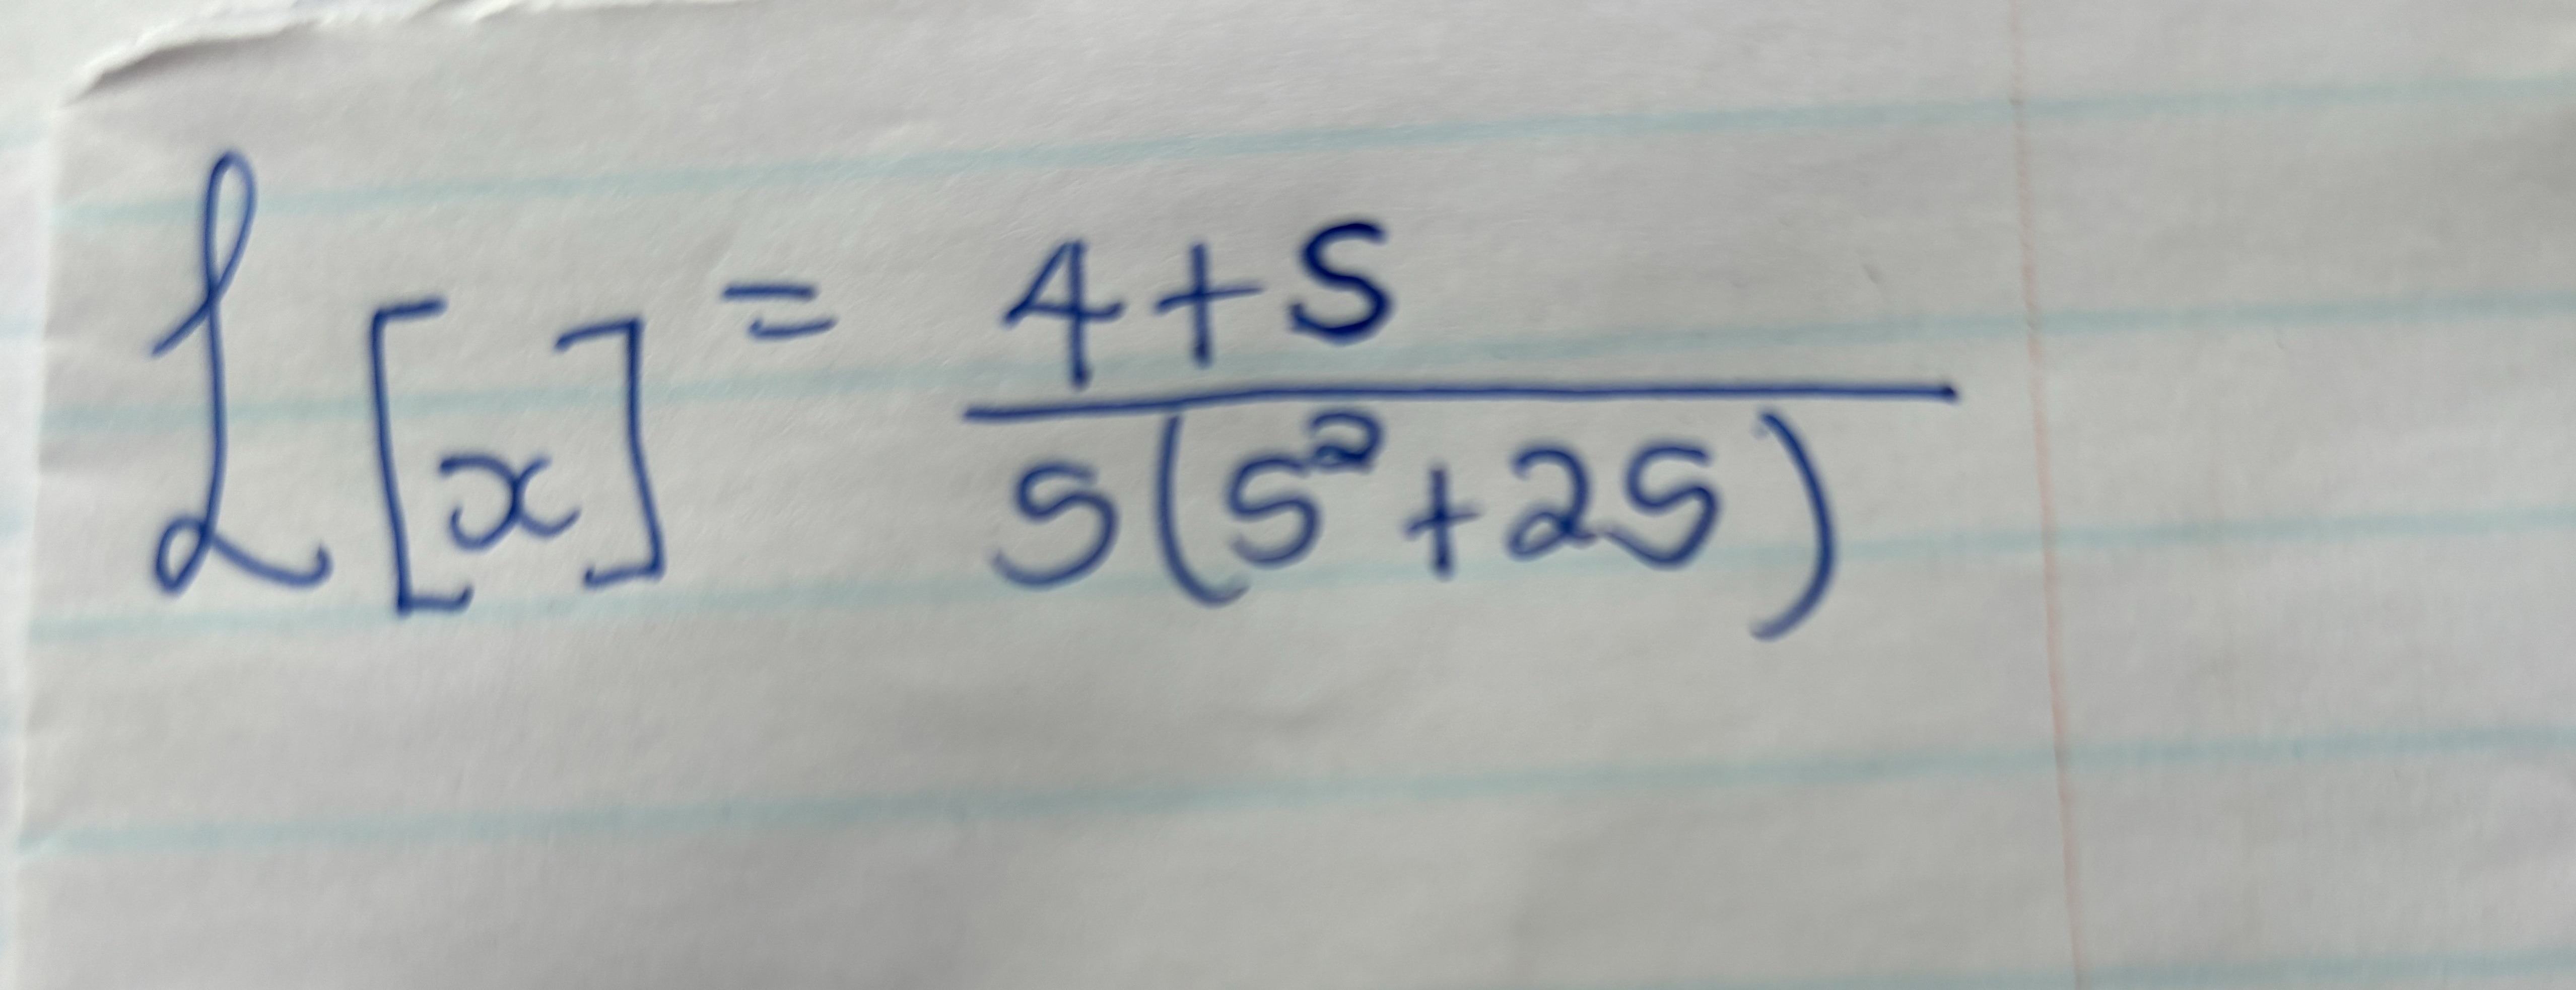 ℒ[x] = (4+s)/(s(s²+2s))